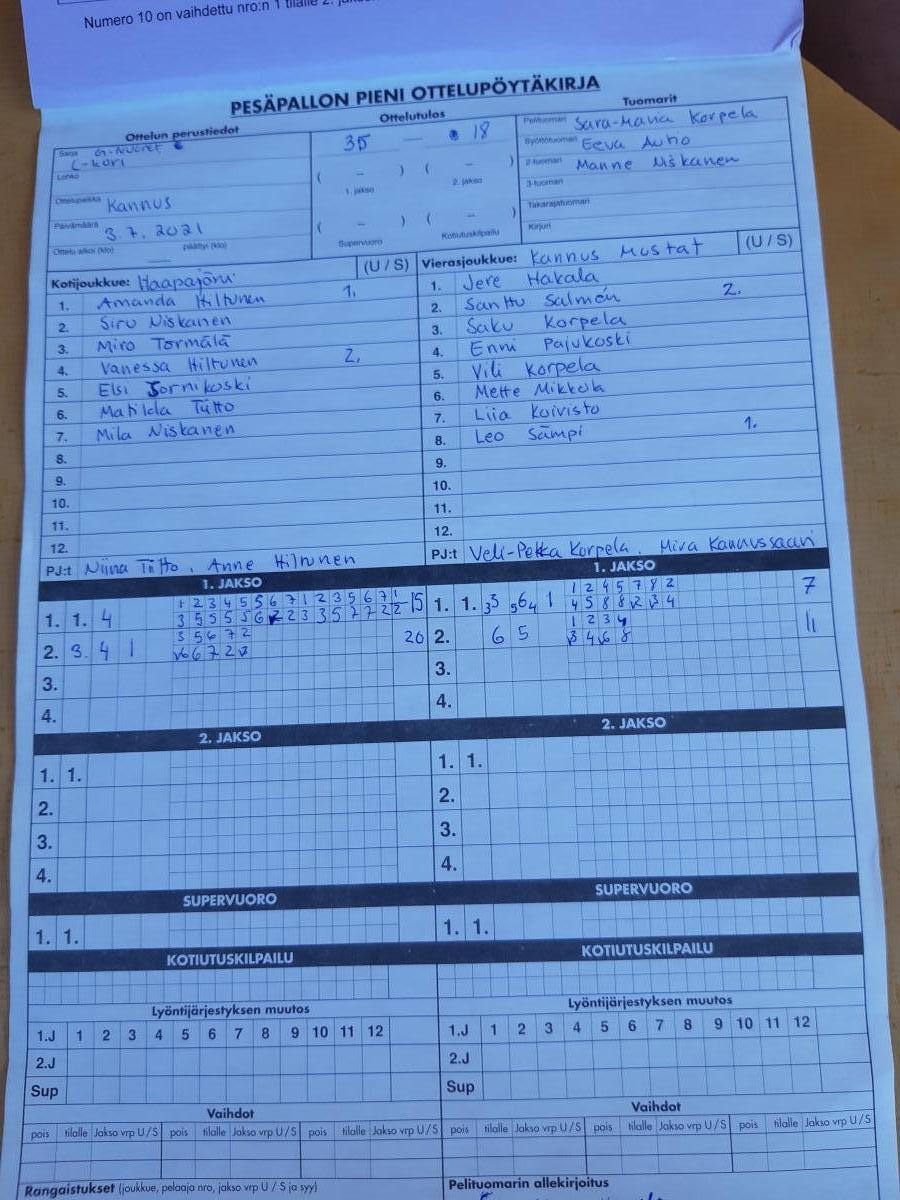 Numero 10 on vaihdettu nro:n 1 tilalle 2.
PESÄPALLON PIENI OTTELUPÖYTÄKIRJA
Ottelun perustiedot
Ottelutulos
Tuomarit
Sarja
L-kori
Lohko
Ottelupaikka Kannus
Päivämäärä 3.7.2021
Ottelu alkoi (klo) päättyi (klo)
35 — 18
( – ) ( – )
1. jakso 2. jakso
( – ) ( – )
Supervuoro Kotiutuskilpailu
Pelituomari Sara-Maria Korpela
Syöttötuomari Eeva Autio
2-tuomari Manne Niskanen
3-tuomari
Takarajatuomari
Kirjuri
Kotijoukkue: Haapajärvi (U / S)
1. Amanda Hiltunen 1.
2. Siru Niskanen
3. Miro Törmälä
4. Vanessa Hiltunen 2.
5. Elsi Jornikoski
6. Matilda Tiitto
7. Mila Niskanen
8.
9.
10.
11.
12.
PJ:t Niina Tiitto, Anne Hiltunen
Vierasjoukkue: Kannus Mustat (U / S)
1. Jere Hakala
2. Santtu Salmén 2.
3. Saku Korpela
4. Enni Pajukoski
5. Vili Korpela
6. Mette Mikkola
7. Liia Koivisto
8. Leo Sämpi 1.
9.
10.
11.
12.
PJ:t Veli-Pekka Korpela, Mira Kannussaari
1. JAKSO
1 2 3 4 5 5 6 7 1 2 3 5 6 7 1
1. 1. 4 15
3 5 6 7 2
2. 3. 4 1 20
3.
4.
1. JAKSO
1 2 4 5 7 8 2
1. 1. 7
4 5 8 8 2 3 4
1 2 3 4
2. 6 5 11
3 4 6 8
3.
4.
2. JAKSO
1. 1.
2.
3.
4.
2. JAKSO
1. 1.
2.
3.
4.
SUPERVUORO
1. 1.
SUPERVUORO
1. 1.
KOTIUTUSKILPAILU
KOTIUTUSKILPAILU
Lyöntijärjestyksen muutos
1.J 1 2 3 4 5 6 7 8 9 10 11 12
2.J
Sup
Lyöntijärjestyksen muutos
1.J 1 2 3 4 5 6 7 8 9 10 11 12
2.J
Sup
Vaihdot
pois tilalle Jakso vrp U / S pois tilalle Jakso vrp U / S pois tilalle Jakso vrp U / S
Vaihdot
pois tilalle Jakso vrp U / S pois tilalle Jakso vrp U / S pois tilalle Jakso vrp U / S
Rangaistukset (joukkue, pelaaja nro, jakso vrp U / S ja syy)
Pelituomarin allekirjoitus